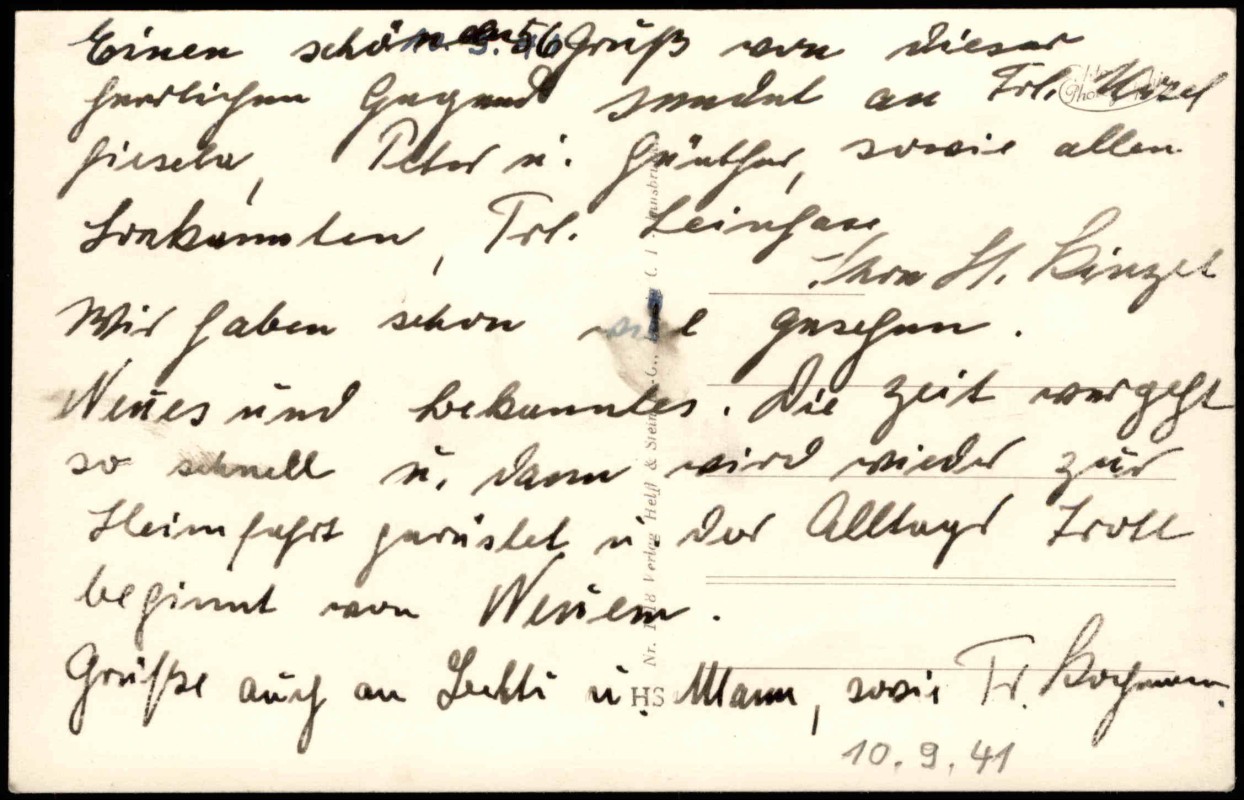 Einen schönen Gruß von dieser
herrlichen Gegend sendet an Frl.
Gisela, Peter u. Günther, sowie allen
Bekannten, Frl.
H. Kinzel
Wir haben schon viel gesehen.
Neues und bekanntes. Die Zeit vergeht
so schnell u. dann wird wieder zur
Heimfahrt gerüstet u. der Alltags Trott
beginnt von Neuem.
Grüße auch an u. Mann, sowie Fr.
10.9.41
HS
Nr. Verlag Helff & Stein